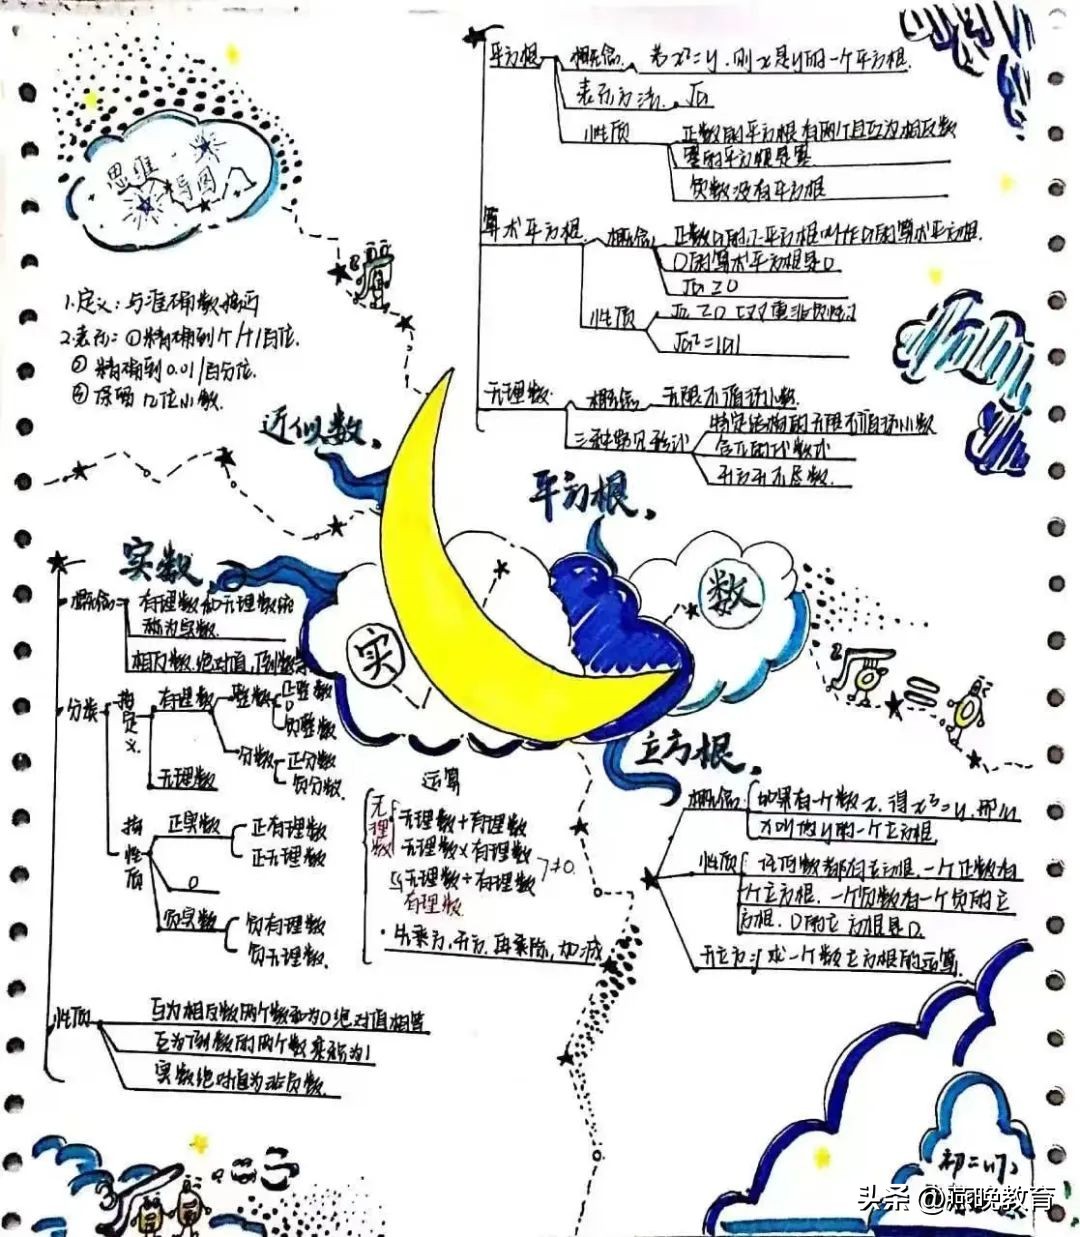 思维
导图
平方根
概念
若x²=y,则x是y的一个平方根.
表示方法
√a
性质
正数的平方根有两个且互为相反数
零的平方根是零
负数没有平方根
算术平方根
概念
正数a的正平方根叫作a的算术平方根.
0的算术平方根是0
√a≥0
性质
√a≥0
√a²=|a|
无理数
概念
无限不循环小数.
三种常见形式
特定结构的无限不循环小数
含π的代数式
开方开不尽数.
1.定义:与准确数接近
2.表示:①精确到个/十/百位.
②精确到0.01/百分位.
保留几位小数.
近似数.
平方根.
实数.
概念
有理数和无理数统
称为实数.
相反数.绝对值,倒数
分类
按定义
有理数
整数
正整数
0
负整数
分数
正分数
负分数.
无理数
按性质
正实数
正有理数
正无理数
0
负实数
负有理数
负无理数.
性质
互为相反数两个数和为0绝对值相等
互为倒数的两个数乘积为1
实数绝对值为非负数.
实
数
运算
无理数
无理数+有理数
无理数×有理数
无理数÷有理数
≠0.
有理数
·先乘方,开方,再乘除,加减
立方根.
概念
如果有一个数x,得x³=y,那么
x叫做y的一个立方根.
性质
任何数都有立方根,一个正数有
个立方根,一个负数有一个负的立
方根,0的立方根是0.
开立方:求一个数立方根的运算.
头条 @燕晚教育